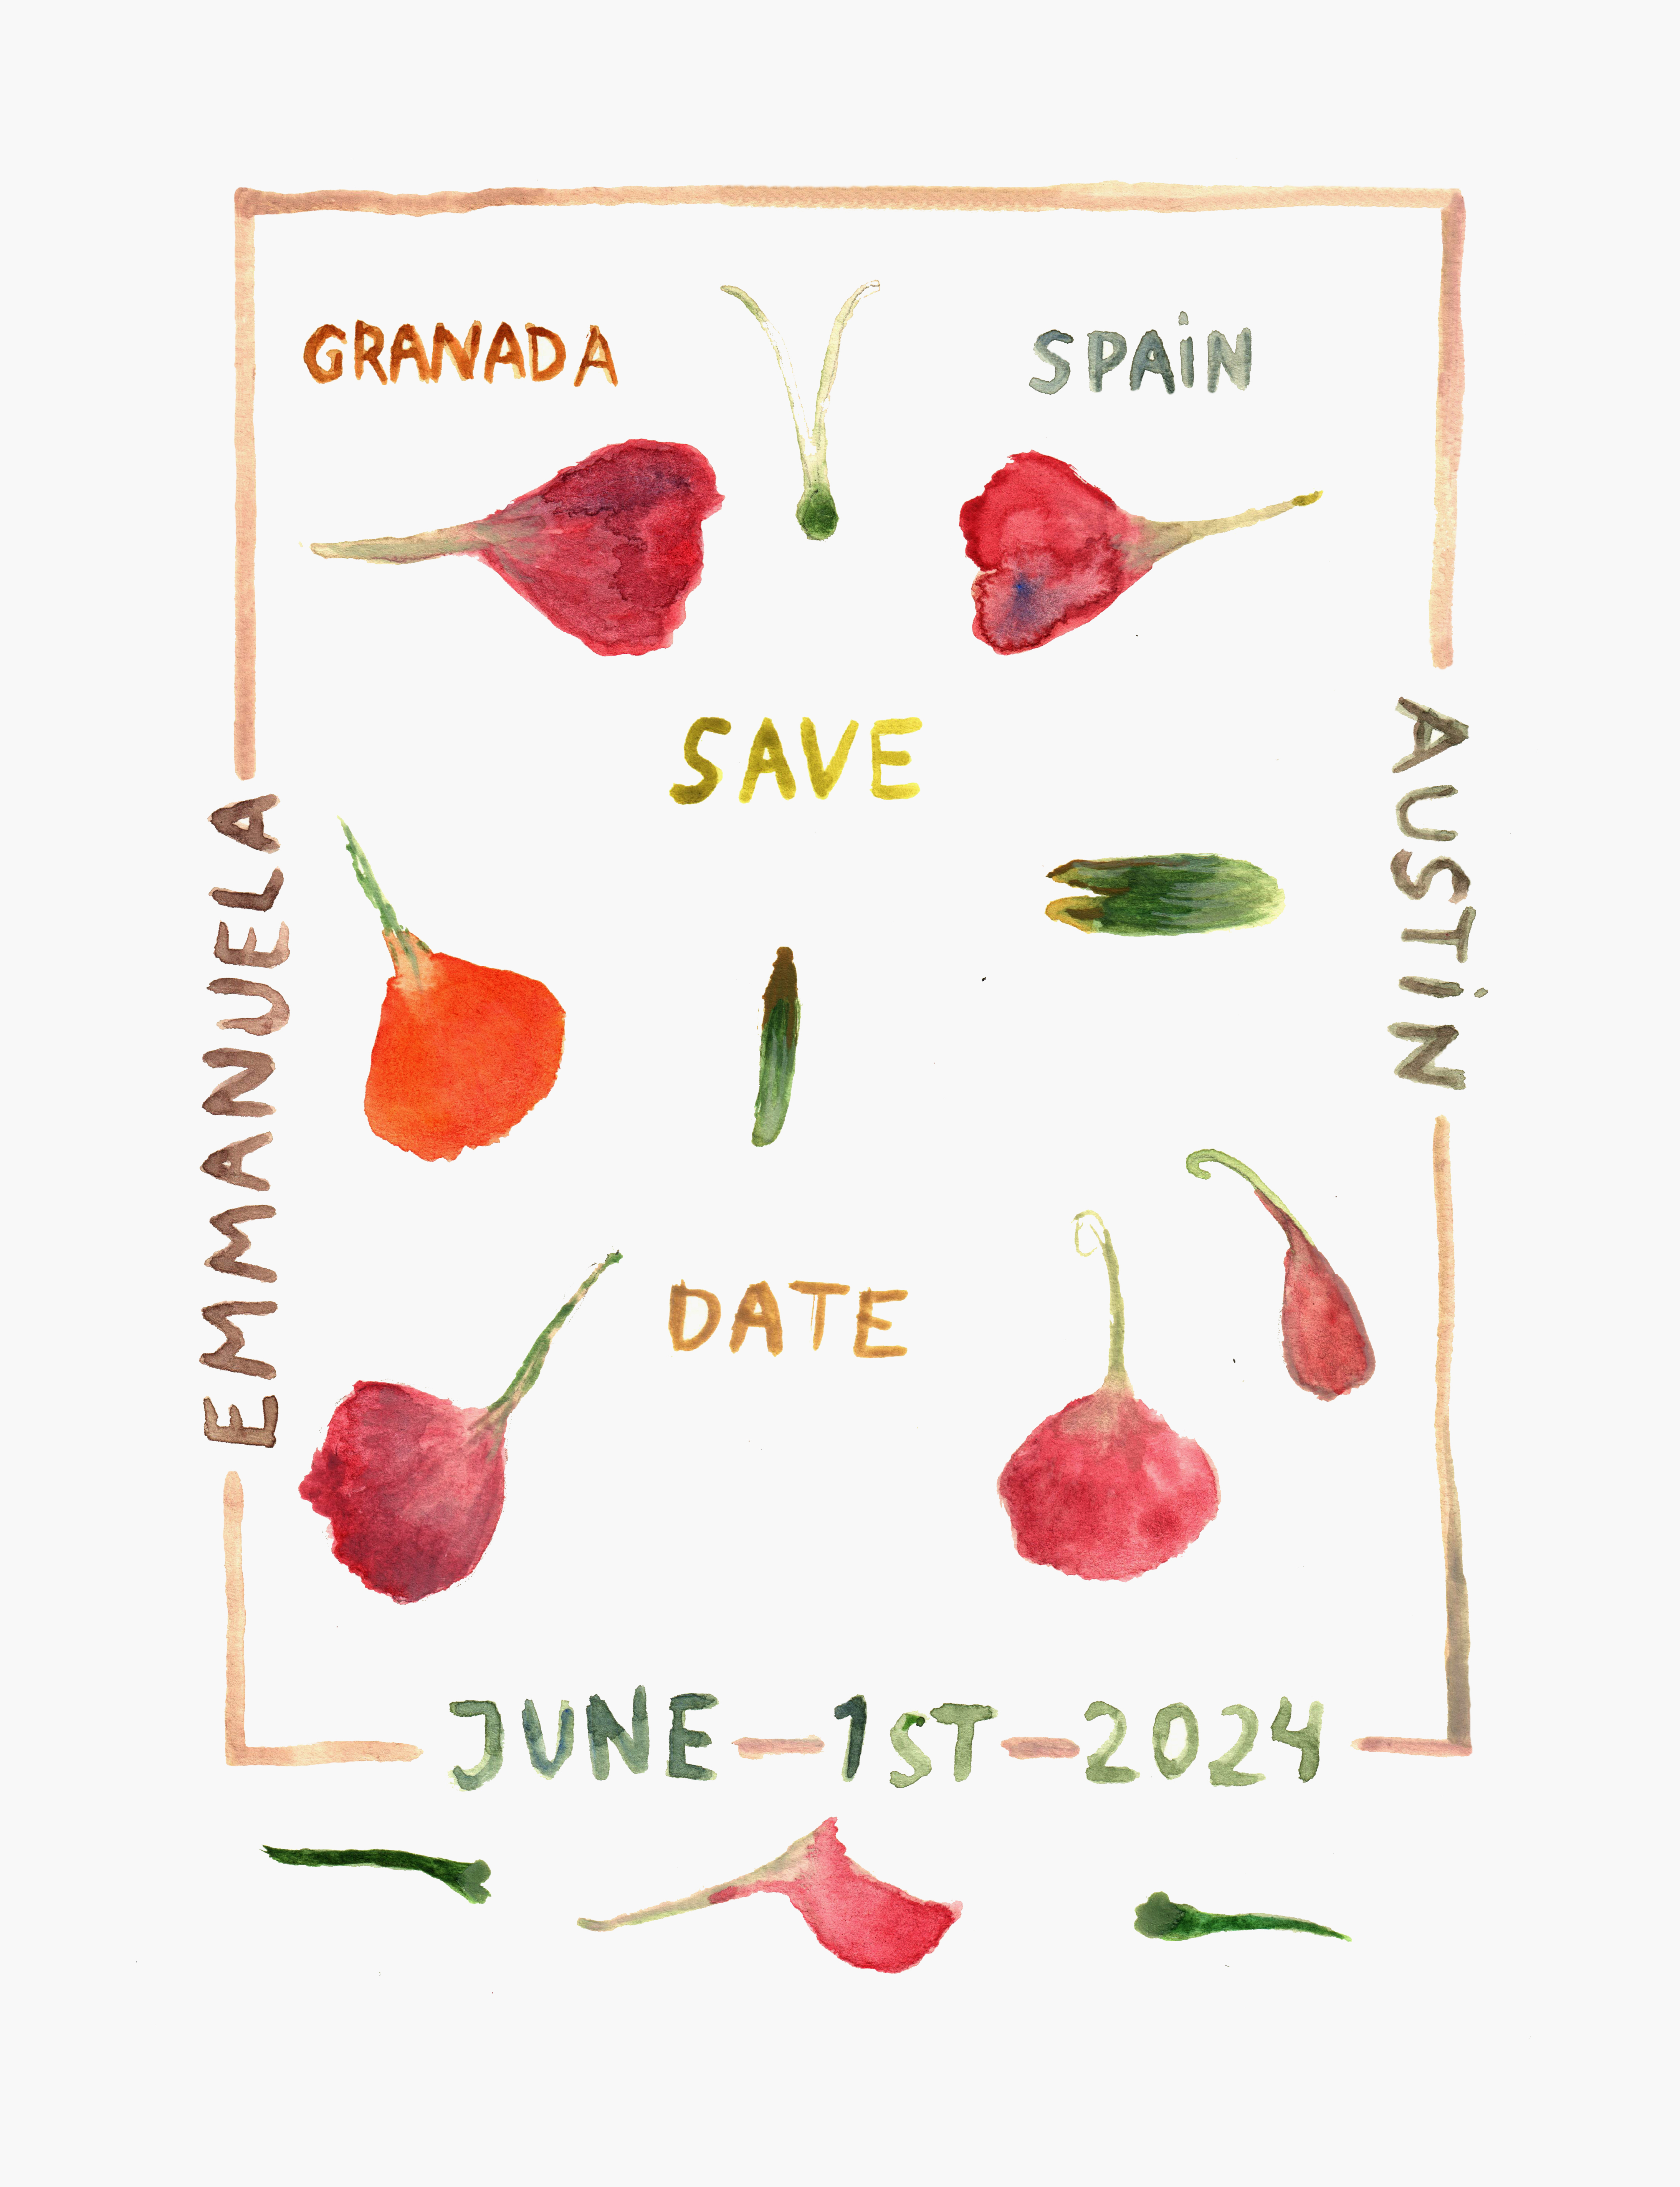 GRANADA
SPAIN
SAVE
EMMANUELA
AUSTIN
DATE
JUNE–1ST–2024